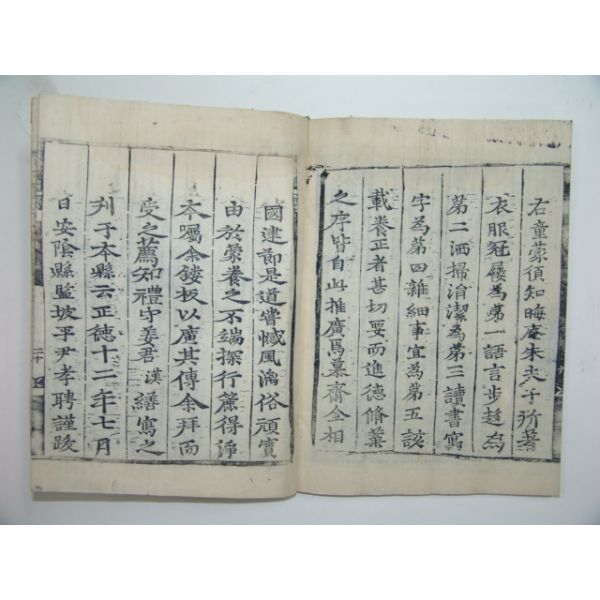 右童蒙須知晦庵朱夫子所著
衣服冠屨為第一語言步趍為
第二洒掃涓潔為第三讀書寫
字為第四雜細事宜為第五該
載養正者甚切要而進德脩業
之序皆自此推廣焉慕齋金相
國建節是道嘗慽風漓俗頑實
由於蒙養之不端探行篋得淨
本囑余鋟板以廣其傳余拜而
受之薦知禮守姜君漢繕寫之
刋于本縣云正德十二年七月
日安陰縣監坡平尹孝聘謹跋